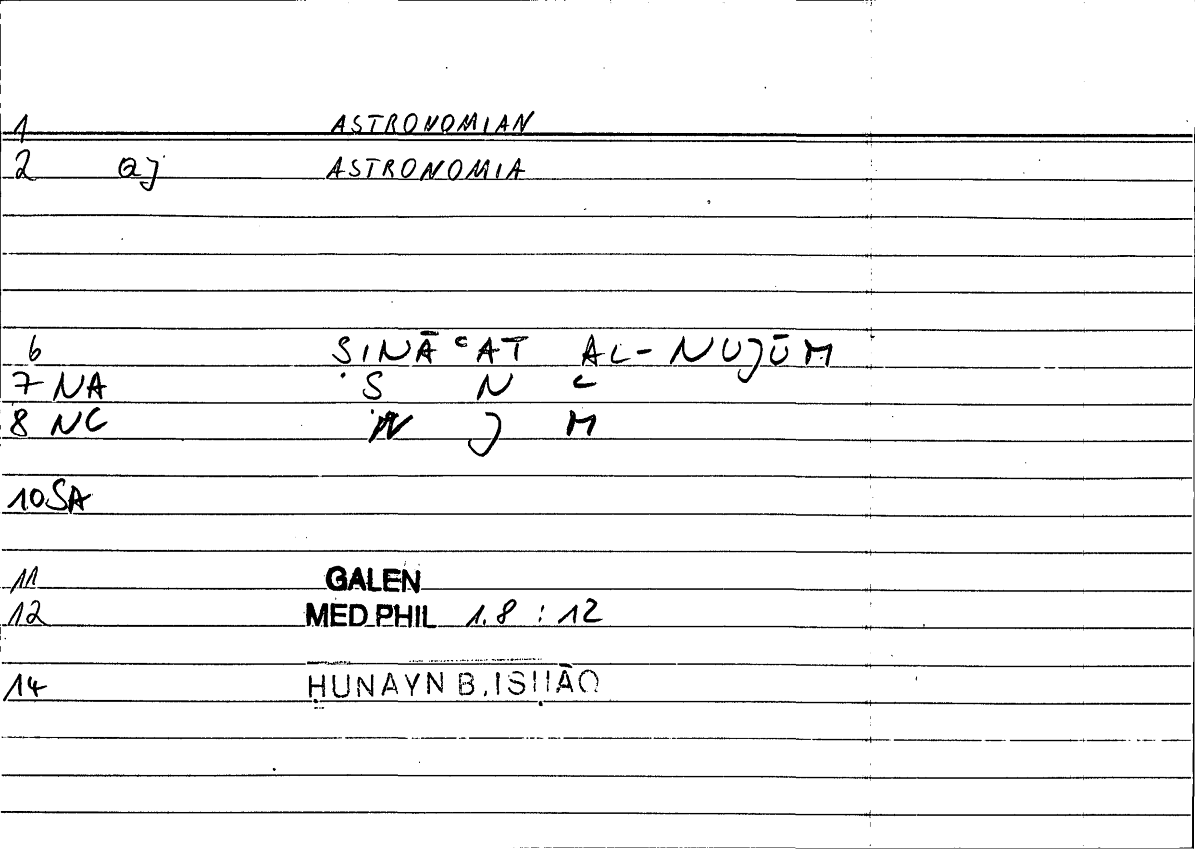 1 ASTRONOMIAN
2 QJ ASTRONOMIA
6 ṢINĀʿAT AL-NUJŪM
7 NA Ṣ N ʿ
8 NC N J M
10 SA
11 GALEN
12 MED PHIL 1.8 : 12
14 ḤUNAYN B. ISḤĀQ